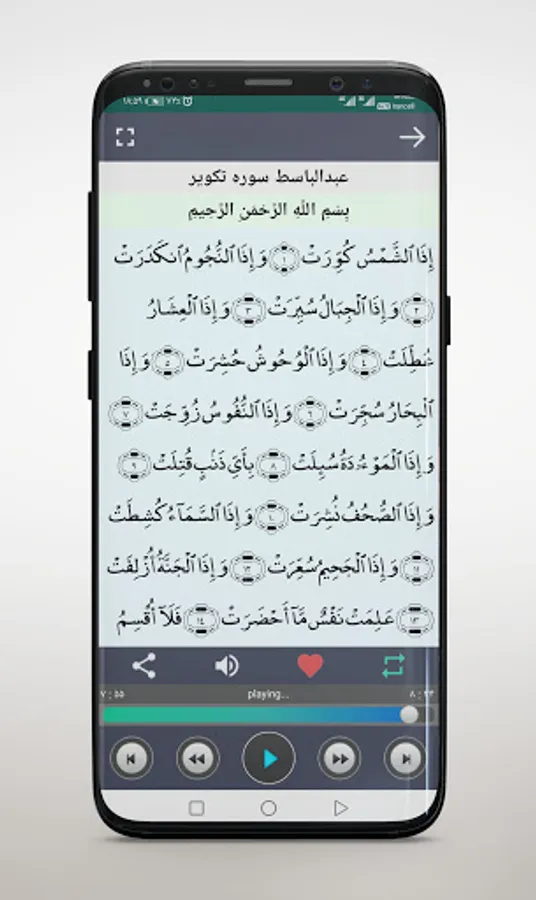 ۱۸:۵۹ ۷۷٪
Irancell
عبدالباسط سوره تکویر
بِسْمِ اللَّهِ الرَّحْمَٰنِ الرَّحِیمِ
إِذَا ٱلشَّمْسُ كُوِّرَتْ ١ وَإِذَا ٱلنُّجُومُ ٱنكَدَرَتْ
٢ وَإِذَا ٱلْجِبَالُ سُيِّرَتْ ٣ وَإِذَا ٱلْعِشَارُ
عُطِّلَتْ ٤ وَإِذَا ٱلْوُحُوشُ حُشِرَتْ ٥ وَإِذَا
ٱلْبِحَارُ سُجِّرَتْ ٦ وَإِذَا ٱلنُّفُوسُ زُوِّجَتْ ٧
وَإِذَا ٱلْمَوْءُۥدَةُ سُئِلَتْ ٨ بِأَيِّ ذَنۢبٍ قُتِلَتْ ٩
وَإِذَا ٱلصُّحُفُ نُشِرَتْ ١٠ وَإِذَا ٱلسَّمَآءُ كُشِطَتْ
١١ وَإِذَا ٱلْجَحِيمُ سُعِّرَتْ ١٢ وَإِذَا ٱلْجَنَّةُ أُزْلِفَتْ
١٣ عَلِمَتْ نَفْسٌ مَّآ أَحْضَرَتْ ١٤ فَلَآ أُقْسِمُ
۷ : ۵۵ playing...